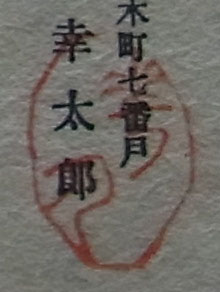 木町七番戸
幸太郎